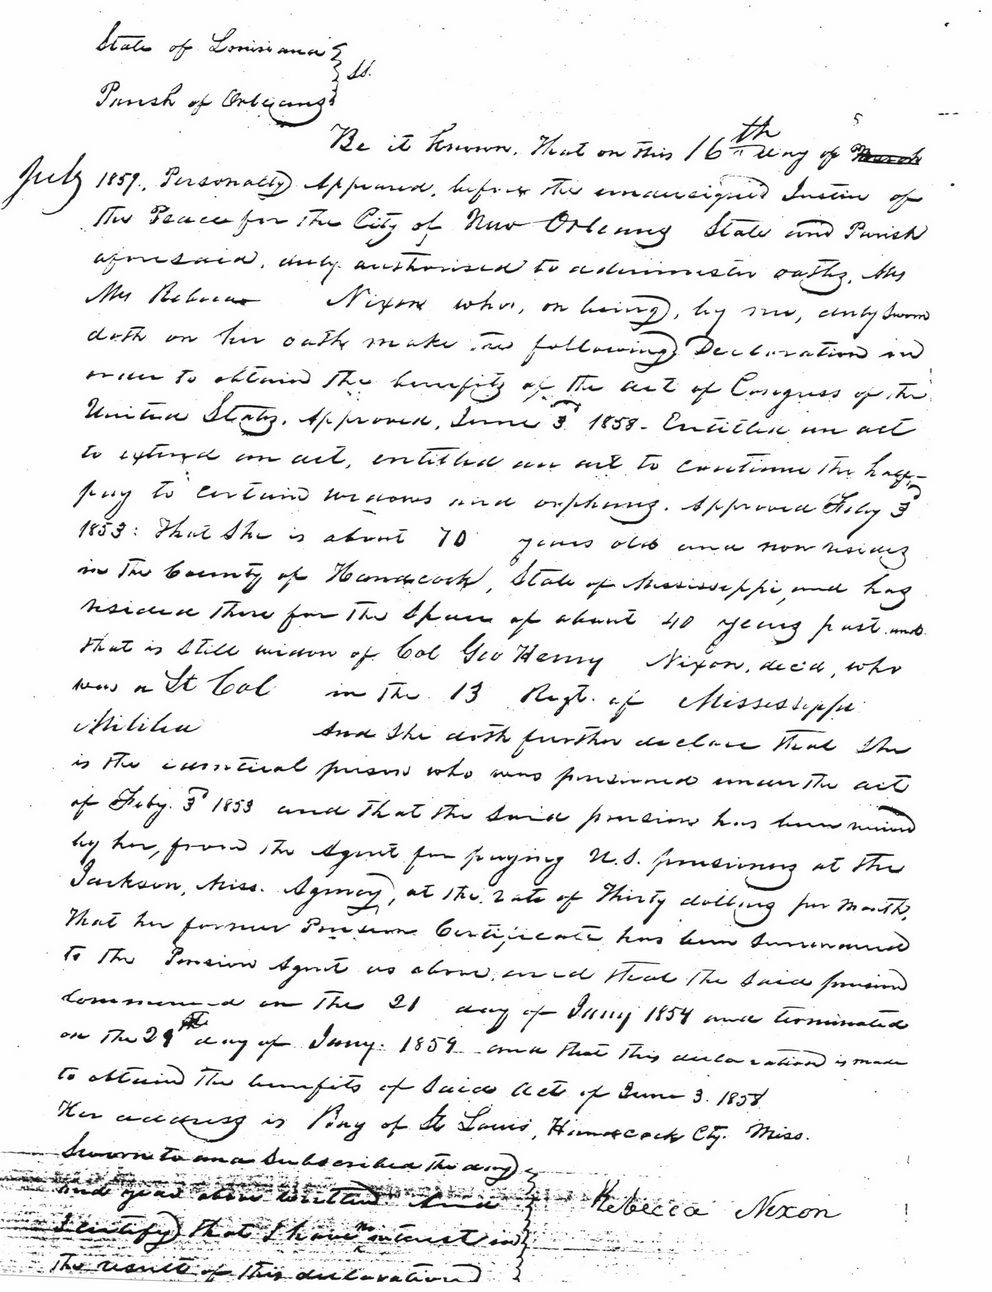 State of Louisiana } ss.
Parish of Orleans
Be it known, that on this 16th day of March
July 1859, Personally Appeared, before the undersigned Justice of
the Peace for the City of New Orleans State and Parish
aforesaid, duly authorised to administer oaths, Mrs
Mrs Rebecca Nixon who, on being, by me, duly sworn
doth on her oath make the following Declaration in
order to obtain the benefits of the act of Congress of the
United States, Approved, June 3d 1858 - Entitled an act
to extend an act, entitled an act to continue the half-
pay to certain widows and orphans. Approved Feby 3d
1853: That She is about 70 years old and now resides
in the County of Handcock, State of Mississippi, and has
resided there for the Space of about 40 years past and
that is Still widow of Col Geo Henry Nixon, decd, who
was a Lt Col in the 13 Regt. of Mississippi
Militia And She doth further declare that She
is the identical person who was pensioned under the act
of Feby. 3d 1853 and that the Said pension has been received
by her, from the Agent for paying U.S. pensions at the
Jackson, Miss. Agency, at the rate of Thirty dollars per month,
That her former Pension Certificate has been Surrendered
to the Pension Agent as above, and that the Said pension
Commenced on the 21 day of Jany 1854 and terminated
on the 29th day of Jany. 1859 and that this declaration is made
to obtain the benefits of Said Act of June 3. 1858
Her address is Bay of St Louis, Handcock Cty. Miss.
Sworn to and Subscribed the day
and year above written And
I certify that I have no interest in
the result of this declaration
Rebecca Nixon